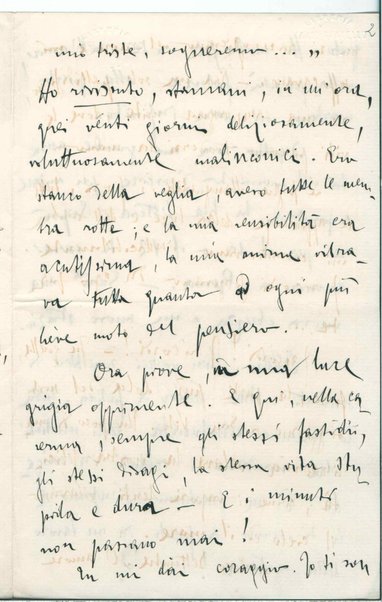 2
mio triste, sogneremo... „
Ho rivissuto, stamani, in un'ora,
quei venti giorni deliziosamente,
voluttuosamente malinconici. Ero
stanco della veglia, avevo tutte le mem-
bra rotte; e la mia sensibilità era
acutissima, la mia anima vibra-
va tutta quanta ad ogni più
lieve moto del pensiero.
Ora piove, in una luce
grigia opprimente. E qui, nella ca-
serma, sempre gli stessi fastidii,
gli stessi disagi, la stessa vita stu-
pida e dura — E i minuti
non passano mai!
Tu mi dai coraggio. Io ti son